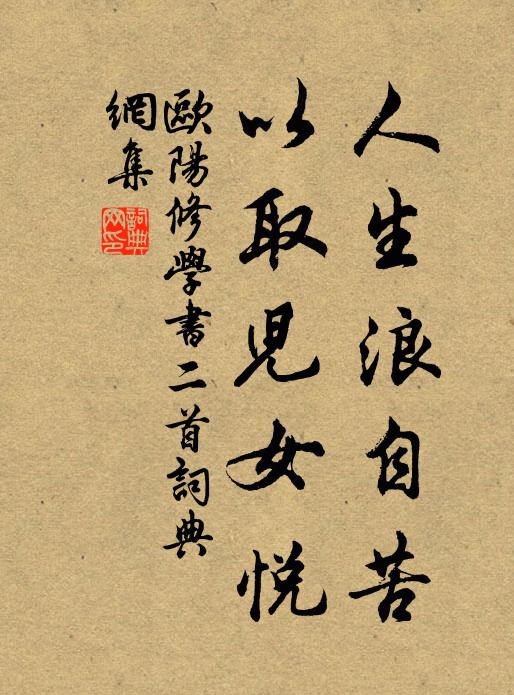 人生浪自苦
以取児女悅
歐陽修學書二首詞典
網集
詞典
网印